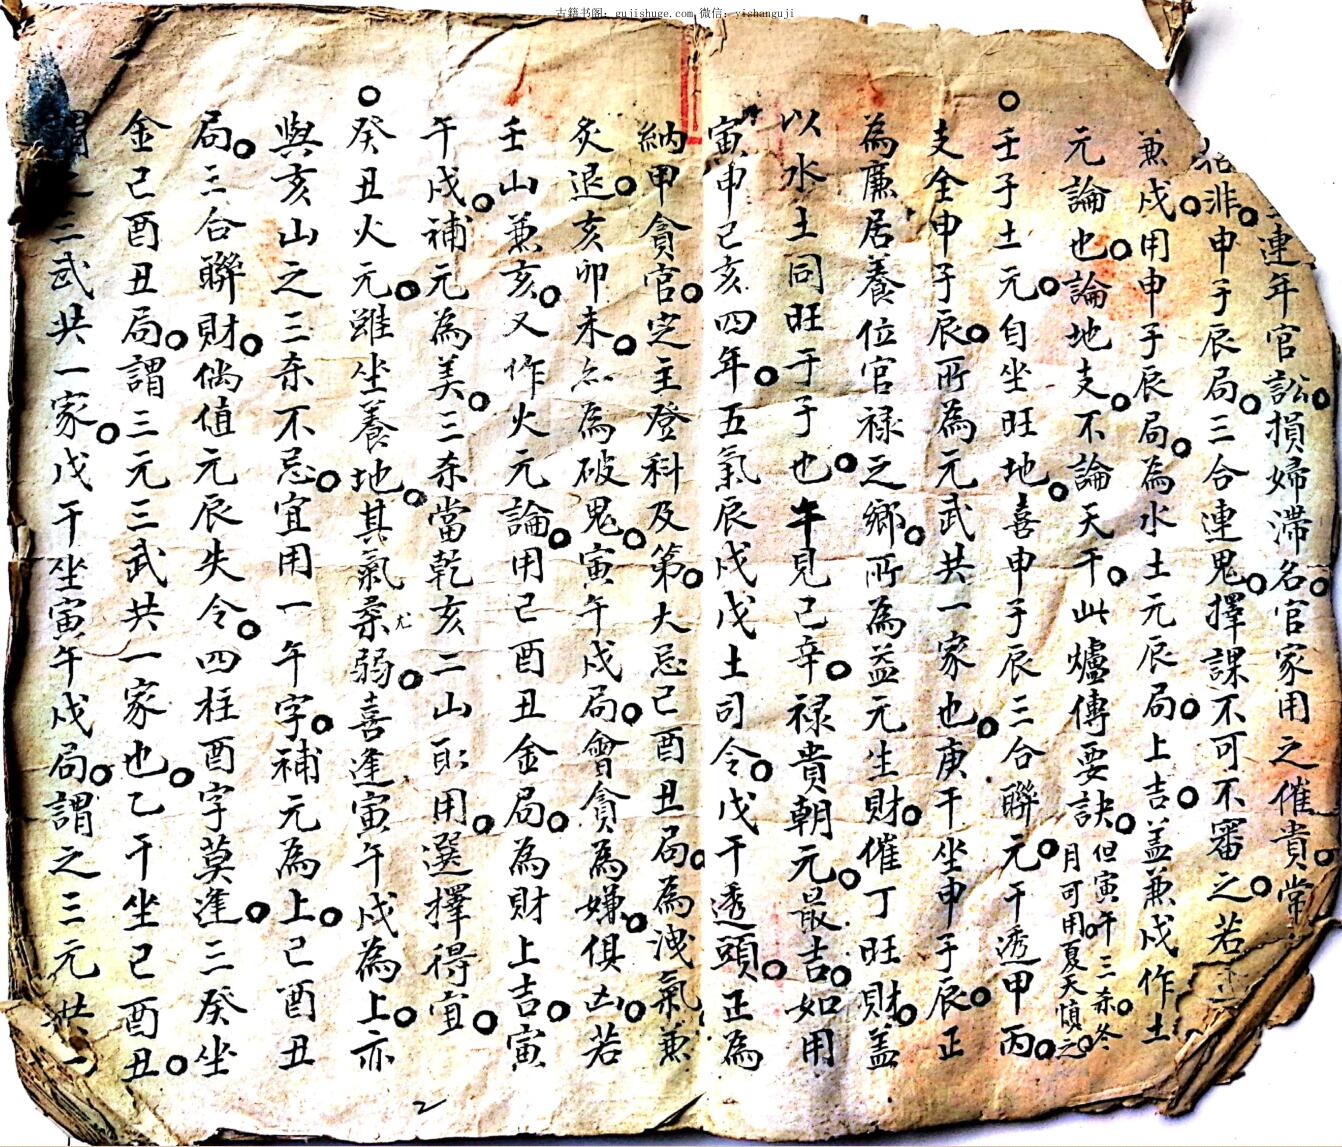 古籍书阁：gujishuge.com 微信：yishanguji
連年官訟損婦滯名官家用之催貴常
非申子辰局三合連鬼擇課不可不審之若
兼戌用申子辰局為水土元辰局上吉盖兼戌作土
元論也論地支不論天干此爐傳要訣但寅午三杀冬
月可用夏天慎之
壬子土元自坐旺地喜申子辰三合聯元干透甲丙
支全申子辰所為元武共一家也庚干坐申子辰正
為廉居養位官禄之鄉所為益元生財催丁旺財盖
以水土同旺于子也午見己辛禄貴朝元最吉如用
寅申己亥四年五氣辰戌戊土司令戊干透頭正為
納甲貪官定主登科及第大忌己酉丑局為洩氣兼
炙退亥卯未亦為破鬼寅午戌局會貪為嫌俱凶若
壬山兼亥又作火元論用己酉丑金局為財上吉寅
午戌補元為美三杀當乾亥二山取用選擇得宜
癸丑火元雖坐養地其氣柔弱喜逢寅午戌為上亦
尤
與亥山之三杀不忌宜用一午字補元為上己酉丑
局三合聯財倘值元辰失令四柱酉字莫逢三癸坐
金己酉丑局謂三元三武共一家也乙干坐己酉丑
謂之三武共一家戊干坐寅午戌局謂之三元共一
2